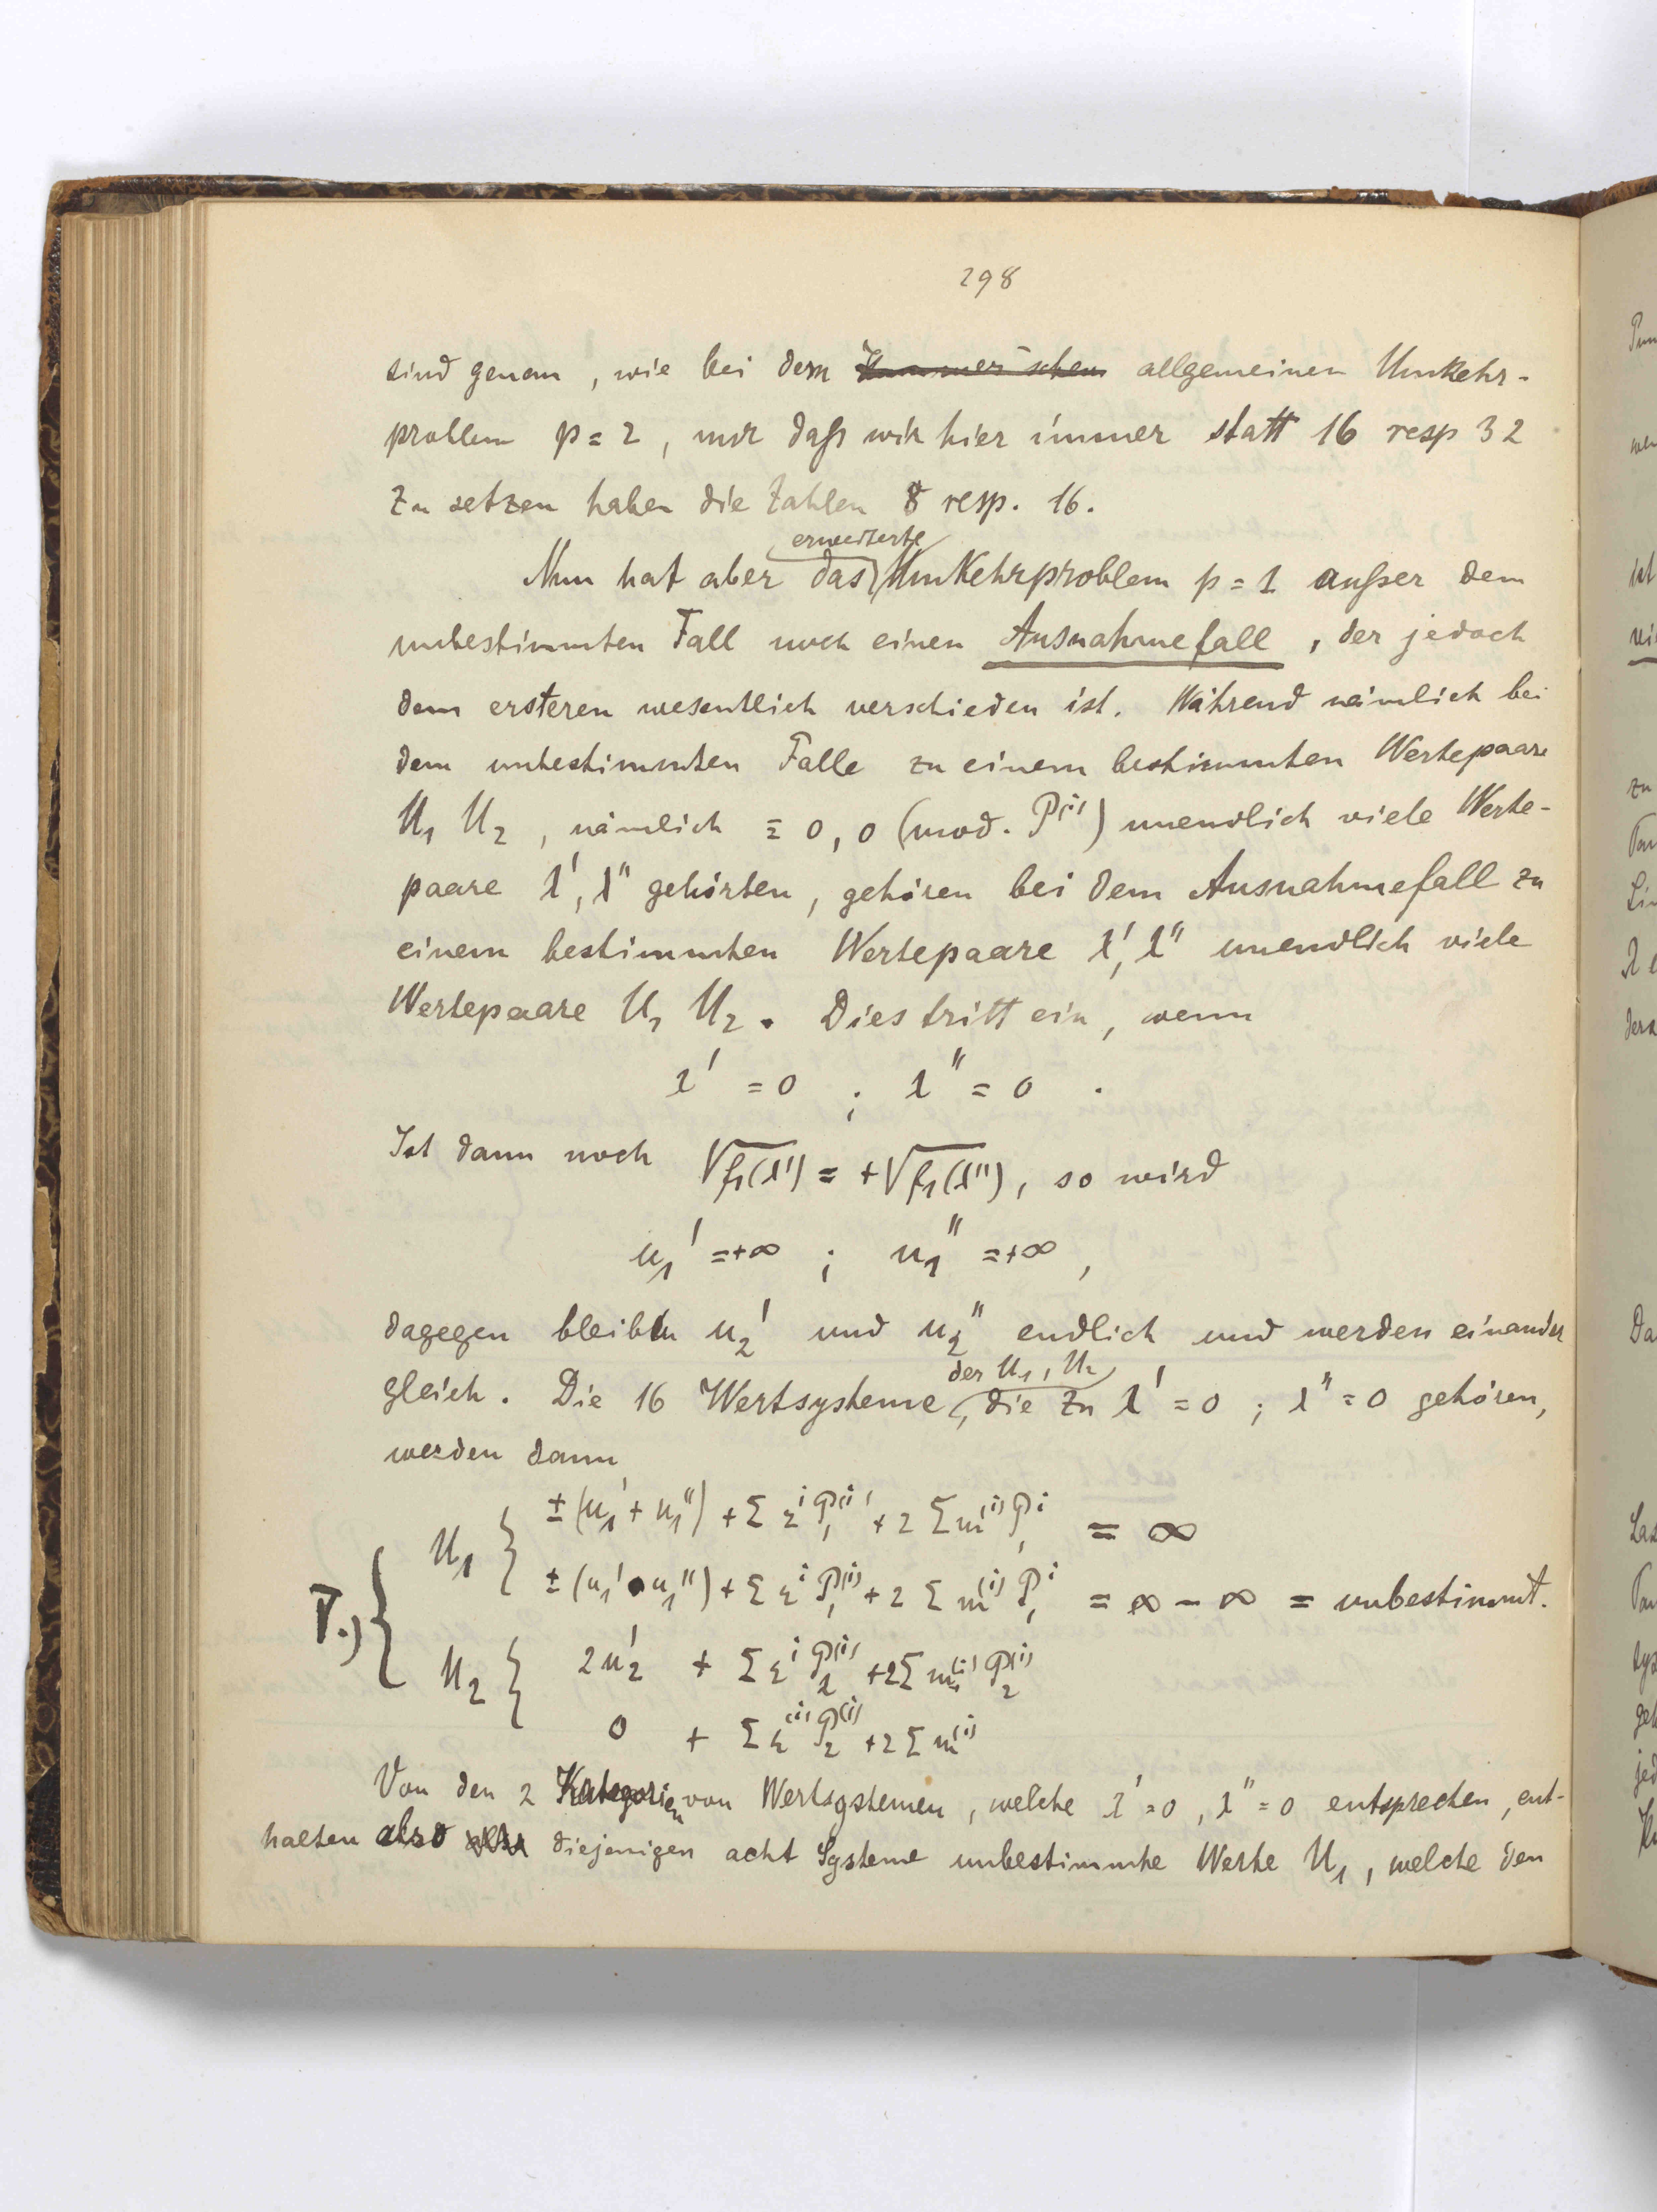 298
sind genau, wie bei dem Kummer'schen allgemeinen Umkehr-
problem p = 2, nur daß wir hier immer statt 16 resp 32
zu setzen haben die Zahlen 8 resp. 16.
erweiterte
Nun hat aber das Umkehrproblem p = 1 außer dem
unbestimmten Fall noch einen Ausnahmefall, der jedoch
dem ersteren wesentlich verschieden ist. Während nämlich bei
dem unbestimmten Falle zu einem bestimmten Wertepaare
U₁ U₂, nämlich ≡ 0, 0 (mod. P⁽ⁱ⁾) unendlich viele Werte-
paare λ', λ'' gehörten, gehören bei dem Ausnahmefall zu
einem bestimmten Wertepaare λ', λ'' unendlich viele
Wertepaare U₁ U₂. Dies tritt ein, wenn
λ' = 0 ; λ'' = 0 .
Ist dann noch √f₁(λ') = +√f₁(λ''), so wird
u₁' = +∞ ; u₁'' = +∞,
dagegen bleiben u₂' und u₂'' endlich und werden einander
der U₁, U₂
gleich. Die 16 Wertsysteme, die zu λ' = 0 ; λ'' = 0 gehören,
werden dann
U₁ { ± (u₁' + u₁'') + Σ εⁱ P₁⁽ⁱ⁾ + 2 Σ m⁽ⁱ⁾ P₁ⁱ = ∞
± (u₁' - u₁'') + Σ εⁱ P₁⁽ⁱ⁾ + 2 Σ m⁽ⁱ⁾ P₁ⁱ = ∞ - ∞ = unbestimmt.
I.) {
U₂ { 2u₂' + Σ εⁱ P₂⁽ⁱ⁾ + 2 Σ m⁽ⁱ⁾ P₂⁽ⁱ⁾
0 + Σ ε⁽ⁱ⁾ P₂⁽ⁱ⁾ + 2 Σ m⁽ⁱ⁾
Von den 2 Kategorien von Wertsystemen, welche λ' = 0, λ'' = 0 entsprechen, ent-
halten also diejenigen acht Systeme unbestimmte Werte U₁, welche den